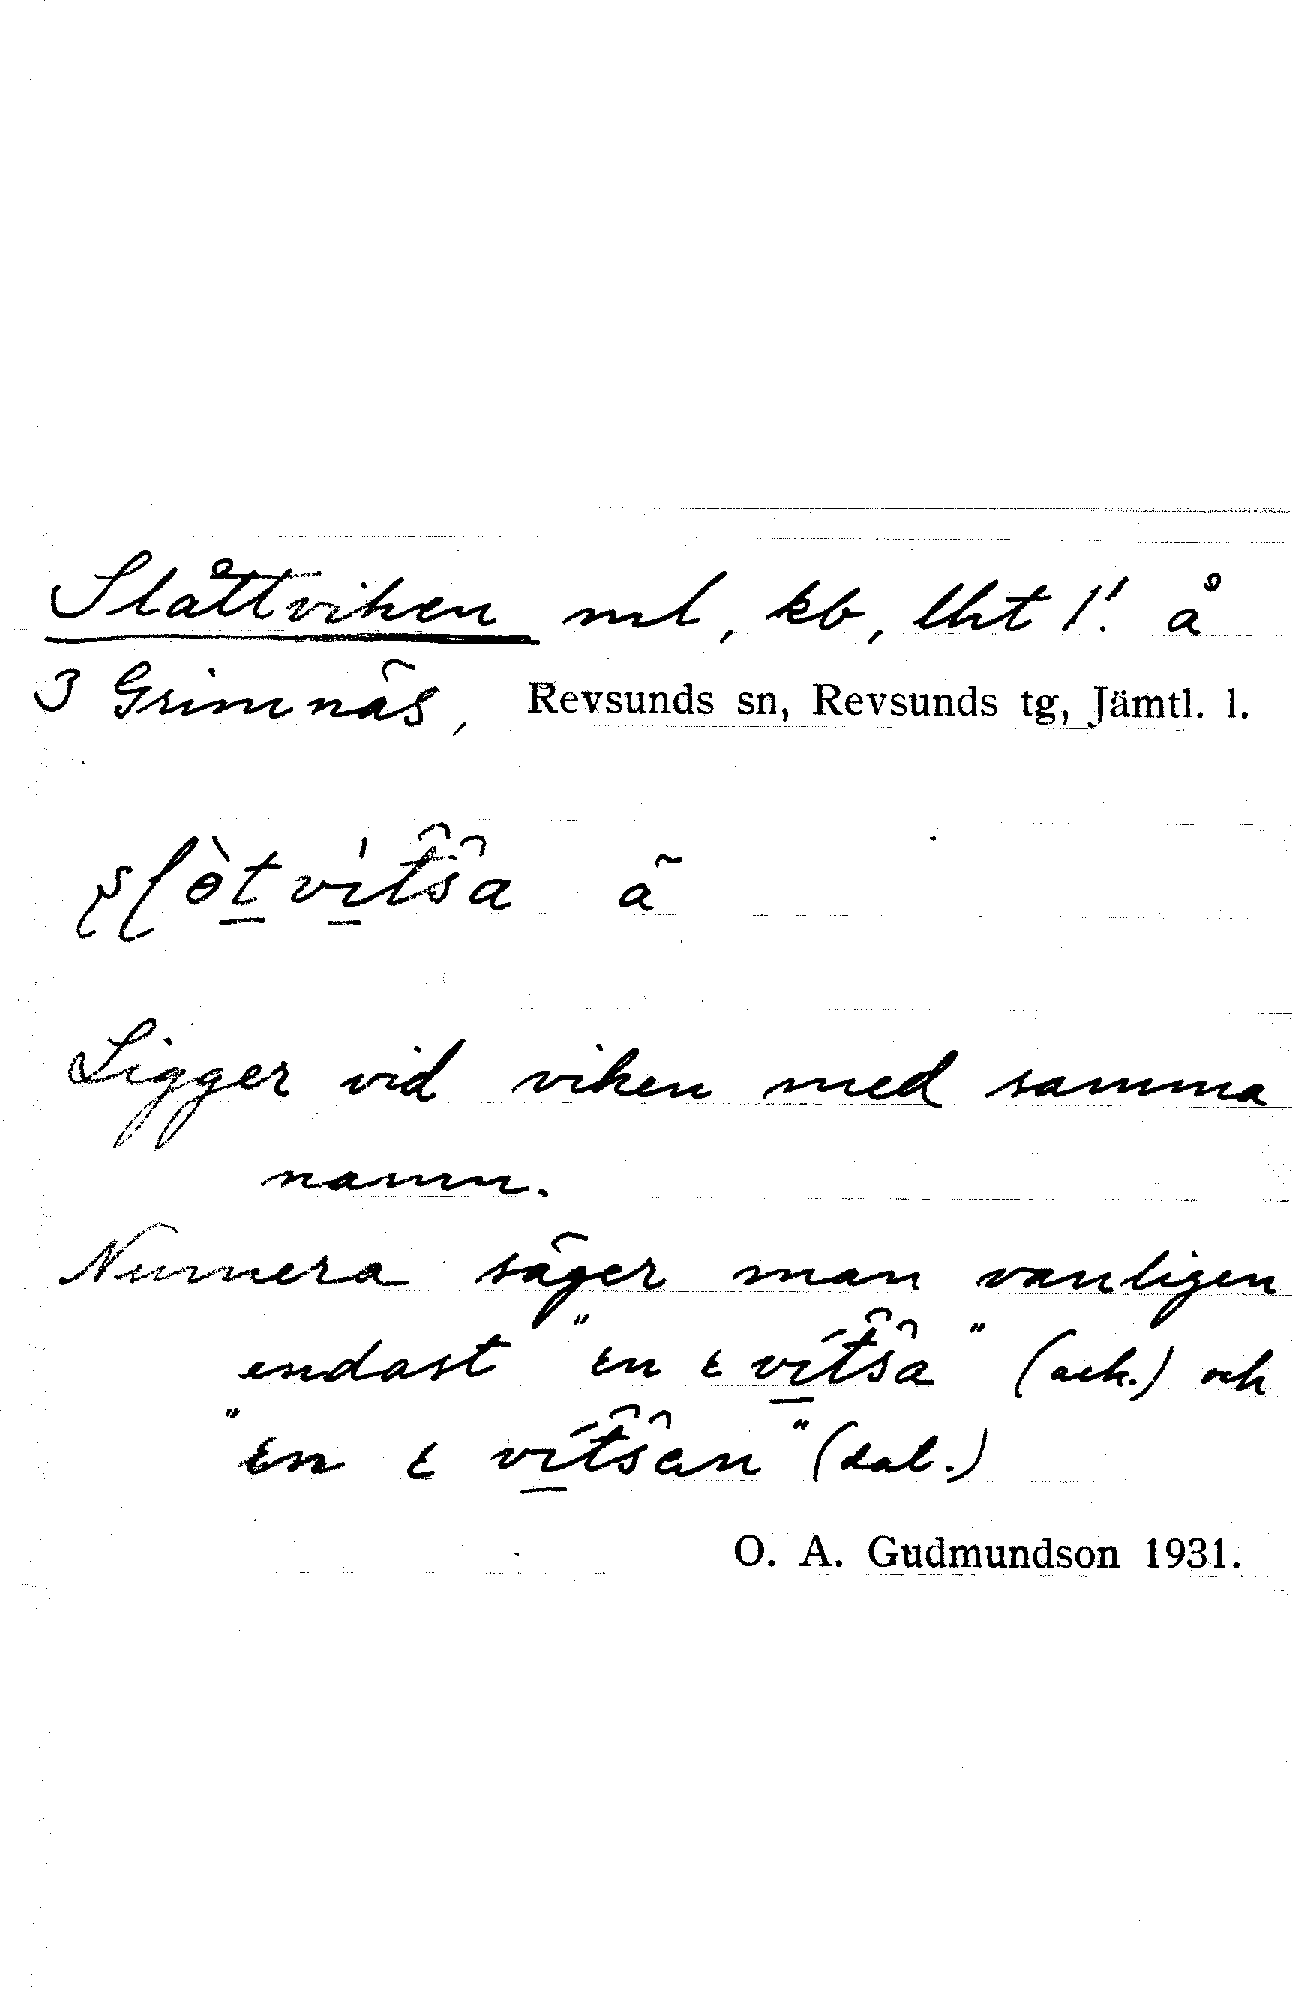 Slåttviken ml, kb, lht 1! å
3 Grimnäs, Revsunds sn, Revsunds tg, Jämtl. l.
Ligger vid viken med samma
namn.
Numera säger man vanligen
endast (ack.) och
(dat.)
O. A. Gudmundson 1931.